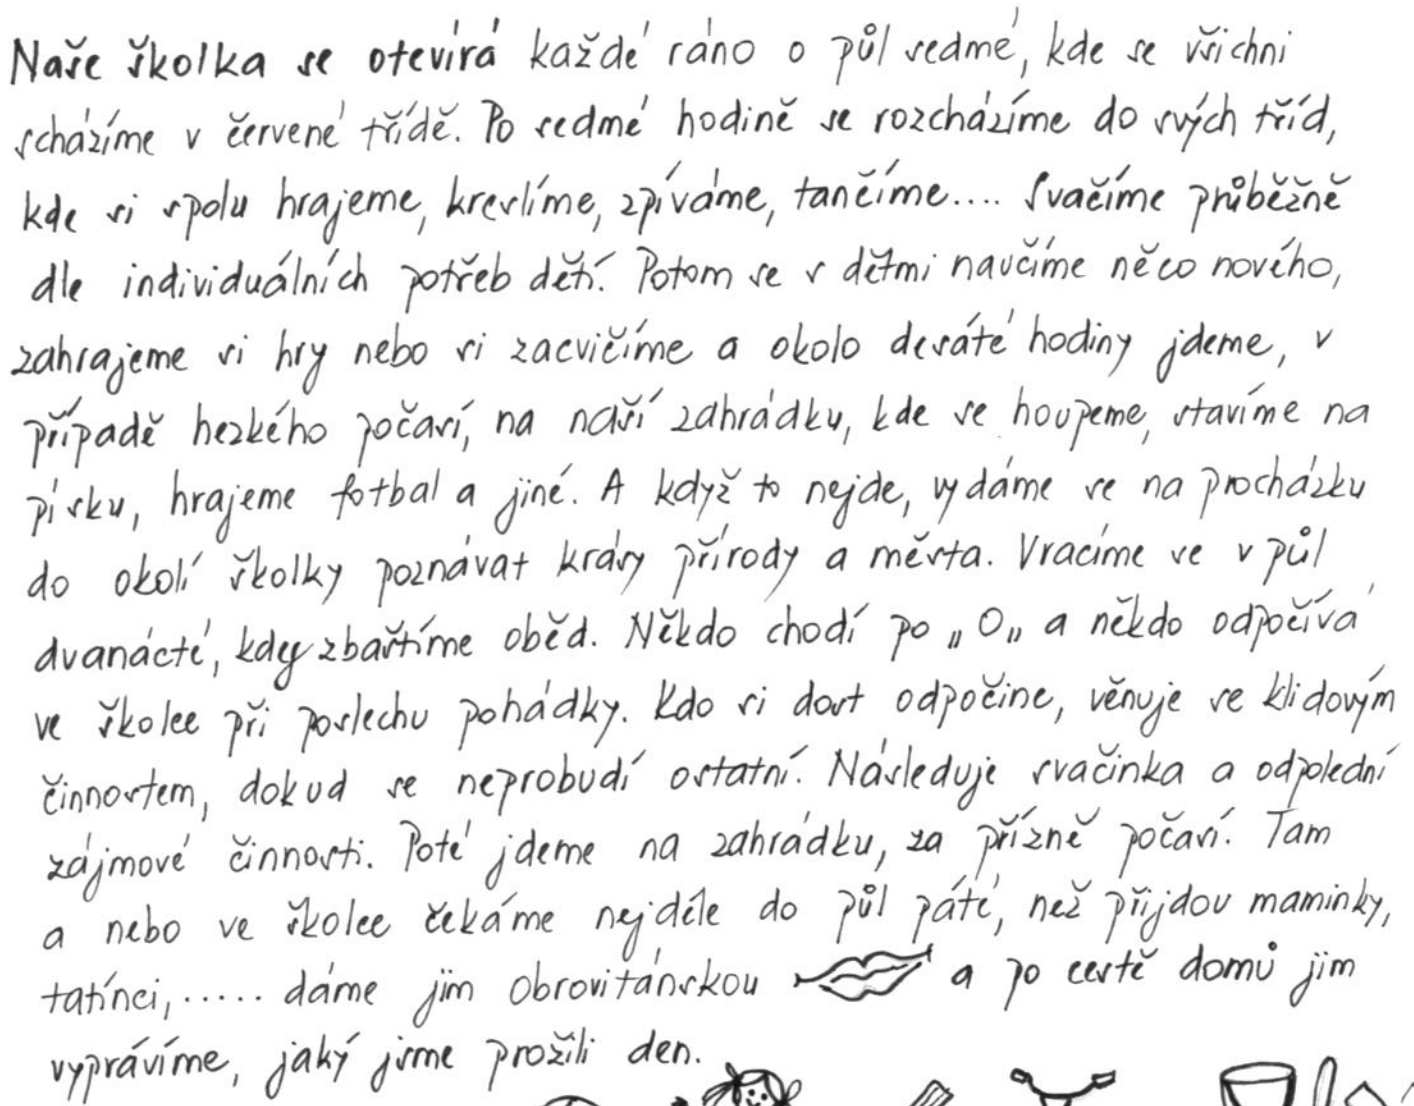 Naše školka se otevírá každé ráno o půl sedmé, kde se všichni
scházíme v červené třídě. Po sedmé hodině se rozcházíme do svých tříd,
kde si spolu hrajeme, kreslíme, zpíváme, tančíme.... Svačíme průběžně
dle individuálních potřeb dětí. Potom se s dětmi naučíme něco nového,
zahrajeme si hry nebo si zacvičíme a okolo desáté hodiny jdeme, v
případě hezkého počasí, na naší zahrádku, kde se houpeme, stavíme na
písku, hrajeme fotbal a jiné. A když to nejde, vydáme se na procházku
do okolí školky poznávat krásy přírody a města. Vracíme se v půl
dvanácté, kdy zbaštíme oběd. Někdo chodí po „O„ a někdo odpočívá
ve školce při poslechu pohádky. Kdo si dost odpočine, věnuje se klidovým
činnostem, dokud se neprobudí ostatní. Následuje svačinka a odpolední
zájmové činnosti. Poté jdeme na zahrádku, za přízně počasí. Tam
a nebo ve školce čekáme nejdéle do půl páté, než přijdou maminky,
tatínci,...... dáme jim obrovitánskou a po cestě domů jim
vyprávíme, jaký jsme prožili den.